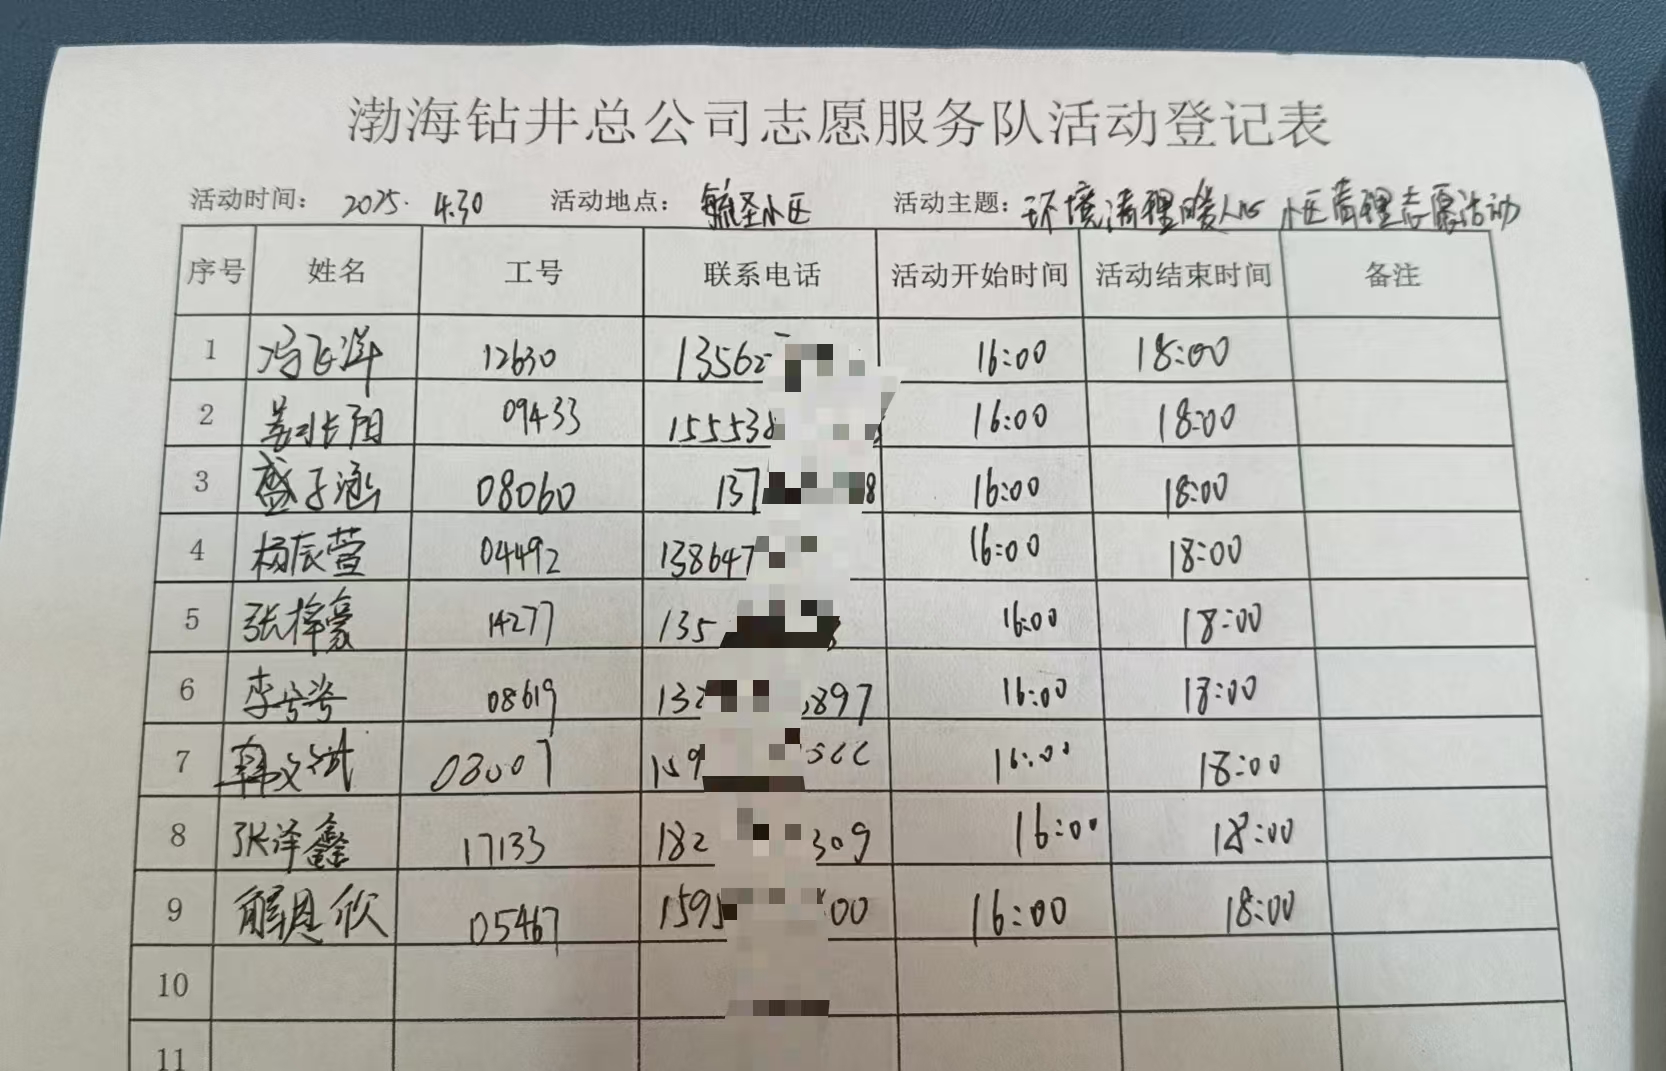 渤海钻井总公司志愿服务队活动登记表
活动时间： 2025. 4.30 活动地点： 小区 活动主题：环境清理暖人心 小区清理志愿活动
序号 姓名 工号 联系电话 活动开始时间 活动结束时间 备注
1 冯飞洋 12630 13562 16:00 18:00
2 09433 155538 16:00 18:00
3 盛子涵 08060 137 8 16:00 18:00
4 杨辰萱 04492 138647 16:00 18:00
5 张梓豪 14277 135 16:00 18:00
6 李 08619 132 897 16:00 18:00
7 韩文斌 03007 159 16:00 18:00
8 张泽鑫 17133 182 309 16:00 18:00
9 解恩欣 05467 1595 00 16:00 18:00
10
11